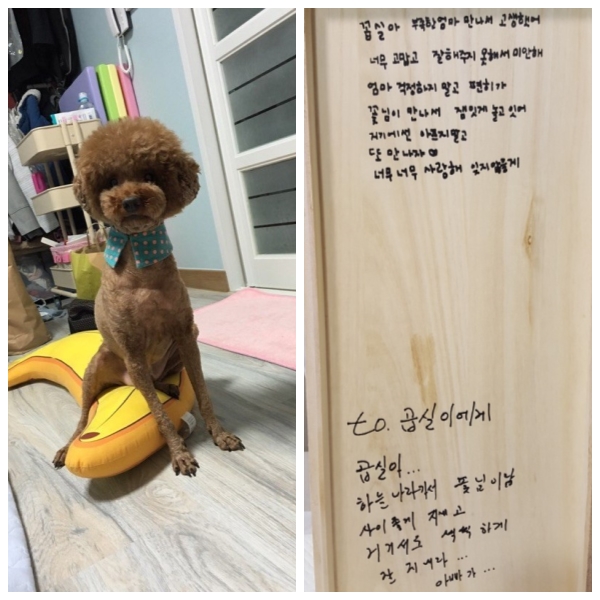 곱실아 부족한엄마 만나서 고생했어
너무 고맙고 잘해주지 못해서 미안해
엄마 걱정하지 말고 편히가
꽃님이 만나서 잼잇게 놀고 잇어
거기에선 아프지말고
또 만나자♡
너무너무 사랑해 잊지않을게
to. 곱실이에게
곱실아...
하늘나라가서 꽃님이랑
사이좋게 지내고
거기서도 씩씩하게
잘 지내라...
아빠가...